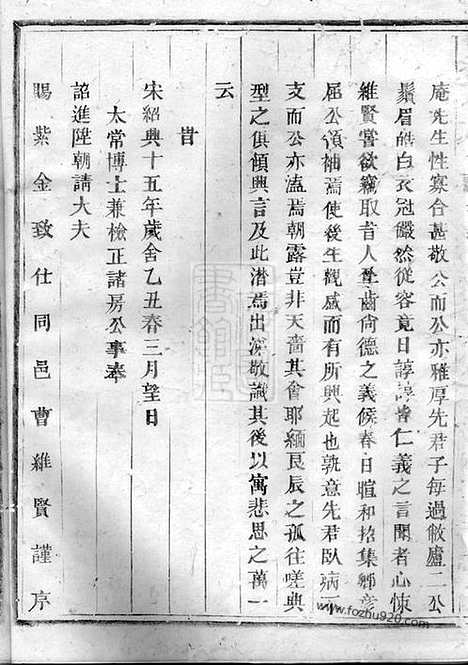 庵先生性寡合甚敬公而公亦雅厚先君子每過敝廬二公
鬚眉皓白衣冠儼然從容竟日諄諄皆仁義之言聞者心悚
維賢嘗欲竊取昔人耋齒尚德之義候春日暄和招集鄉彦
屈公領袖焉使後生觀感而有所興起也孰意先君臥病不
支而公亦溘焉朝露豈非天嗇其會耶緬良辰之孤往嗟典
型之俱傾興言及此潜焉出涕敬識其後以寓悲思之萬一
云
旹
宋紹興十五年歲舍乙丑春三月望日
太常博士兼檢正諸房公事奉
詔進陞朝請大夫
賜紫金致仕同邑曹維賢謹序
www.fozhu920.com